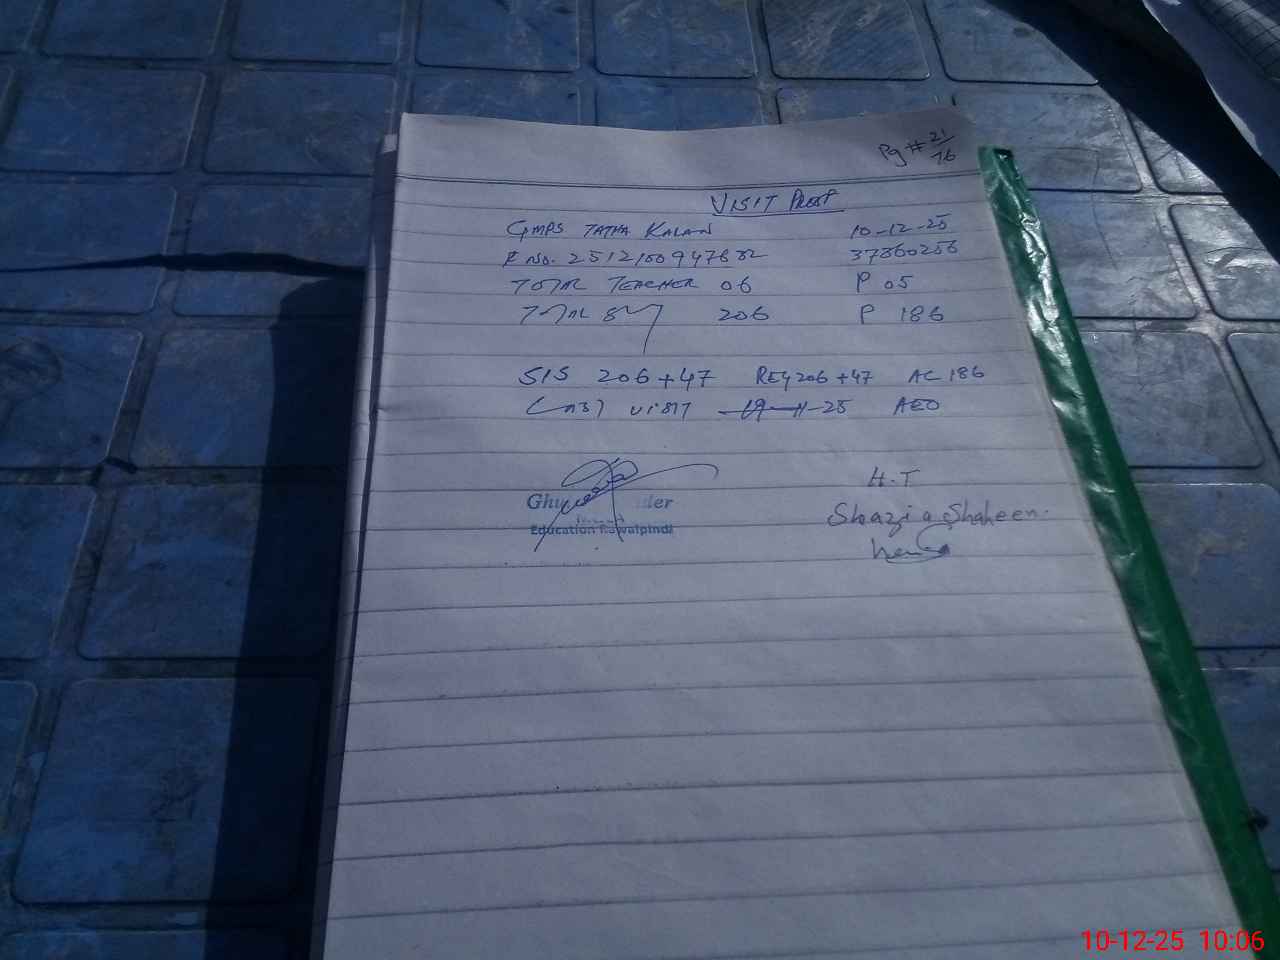 Pg # 21/76
VISIT PROOF
GMPS TATHA KALAN 10-12-25
R No. 2512100947682 37360256
TOTAL TEACHER 06 P 05
TOTAL 206 P 186
SIS 206+47 REG 206+47 AC 186
VISIT 19-11-25 AEO
H.T
Education Rawalpindi
Shazia Shaheen.
10-12-25 10:06